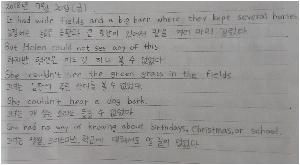 2018년 7월 20일 (금)
It had wide fields and a big barn where they kept several horses.
넓은 큰 있어서 말을 여러 마리 길렀다
But Helen could not see any of this.
하지만 헬렌은 이것 볼 수 없었다
She couldn't see the green grass in the fields
그녀는 들판에 푸른 볼 수 없었다.
She couldn't hear a dog bark.
그녀는 개 짖는 소리도 들을 수 없었다.
She had no way of knowing about birthdays, Christmas, or school.
그녀는 생일, 크리스마스, 학교에 대해서도 알 길이 없었다.